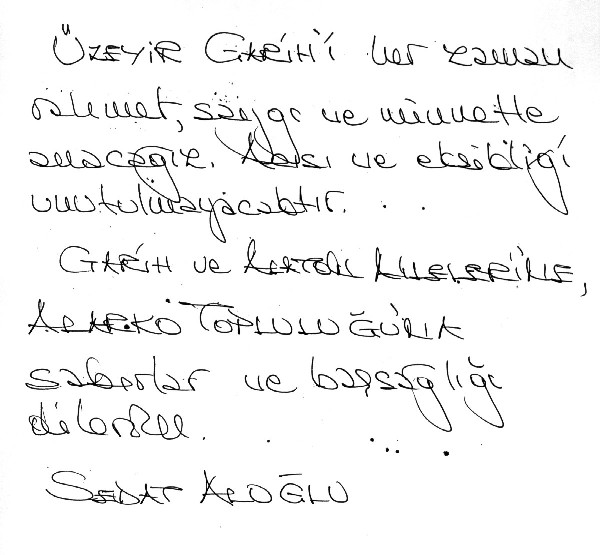 ÜZEYİR GARİH'İ her zaman
rahmet, saygı ve minnetle
anacağız. Acısı ve eksikliği
unutulmayacaktır. . .
GARİH ve ALATON AİLELERİNE,
ALARKO TOPLULUĞUNA
sabırlar ve başsağlığı
dilerim.
SEDAT ALOĞLU